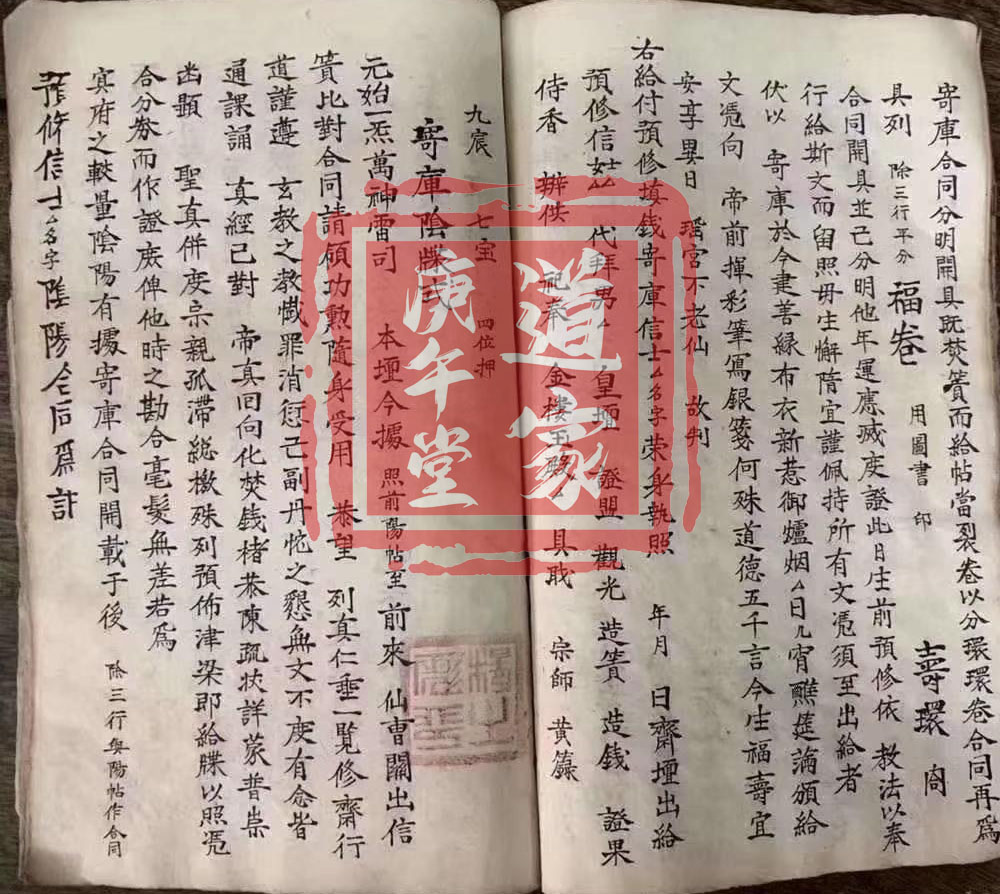 寄庫合同分明開具既焚簀而給帖當裂卷以分環環卷合同再為
具列 除三行平分 福卷 用圖書 印 壽環
合同開具並已分明他年運應滅度證此日生前預修依 教法以奉
行給斯文而留照毋生懈隋宜謹佩持所有文憑須至出給者
伏以 寄庫於今書善緣布衣新惹御爐烟厶日九宵醮筵滿頒給
文憑向 帝前揮彩筆寫銀箋何殊道德五千言今生福壽宜
安享異日 瑤宮不老仙 故判
右給付預修填錢寄庫信士厶名字荣身執照 年月 日齋壇出給
預修信士女厶 代拜男厶 皇壇 證盟 觀光 造簀 造錢 證果
侍香 辦供 祀奉 金樓玉殿厶 具戢 宗師 黃籙
九宸 七宝 四位押
寄庫陰牒式
元始一炁萬神雷司 本壇今據 照前陽帖至 前來 仙曹關出信
簀比對合同請領功勲隨身受用 恭望 列真仁垂一覧修齋行
道謹遵 玄教之教懺罪消愆已副丹忱之懇無文不度有念皆
通課誦 真經已對 帝真回向化焚錢楮恭陳疏狀詳蒙普祟
凼顯 聖真併度宗親孤滯總檄殊列預佈津梁即給牒以照憑
合分券而作證庶俾他時之勘合毫髮無差若為
冥府之較量陰陽有據寄庫合同開載于後 除三行與陽帖作合同
預修信士厶名字陰陽合同為計
道家
庚午堂